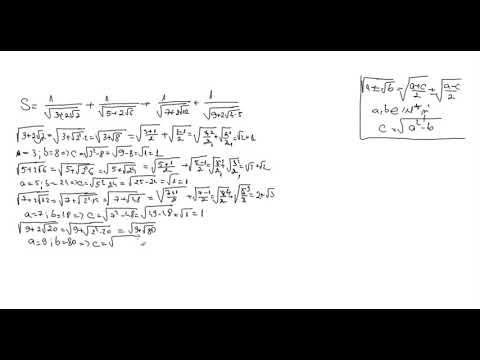 S = 1/√(3+2√2) + 1/√(5+2√6) + 1/√(7+2√12) + 1/√(9+2√4·5)
√(3+2√2) = √(3+√2²·2) = √(3+√8) = √((3+1)/2) + √((3-1)/2) = √(4/2) + √(2/2) = √2+1
a=3; b=8 => c=√(3²-8) = √(9-8) = √1 = 1
√(5+2√6) = √(5+√2²·6) = √(5+√24) = √((5+1)/2) + √((5-1)/2) = √(6/2) + √(4/2) = √3+√2
a=5; b=24 => c=√(5²-24) = √(25-24) = √1 = 1
√(7+2√12) = √(7+√2²·12) = √(7+√48) = √((7+1)/2) + √((7-1)/2) = √(8/2) + √(6/2) = 2+√3
a=7; b=48 => c=√(7²-48) = √(49-48) = √1 = 1
√(9+2√20) = √(9+√2²·20) = √(9+√80)
a=9; b=80 => c=√ =
√(a±√b) = √((a+c)/2) ± √((a-c)/2)
a, b ∈ N*
c = √(a²-b)